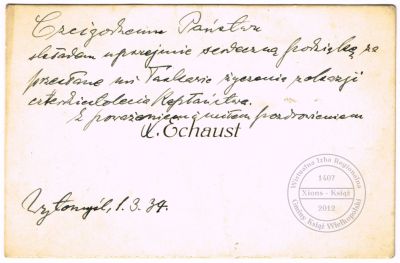 Czcigodnemu Państwu
składam uprzejmie serdeczną podziękę za
przesłane mi Łaskawie życzenia z okazji
czterdziestolecia Kapłaństwa.
Z poważaniem i miłem pozdrowieniem
X. Echaust
1.3.34.
Wirtualna Izba Regionalna
1407
Xions - Książ
2012
Gminy Książ Wielkopolski